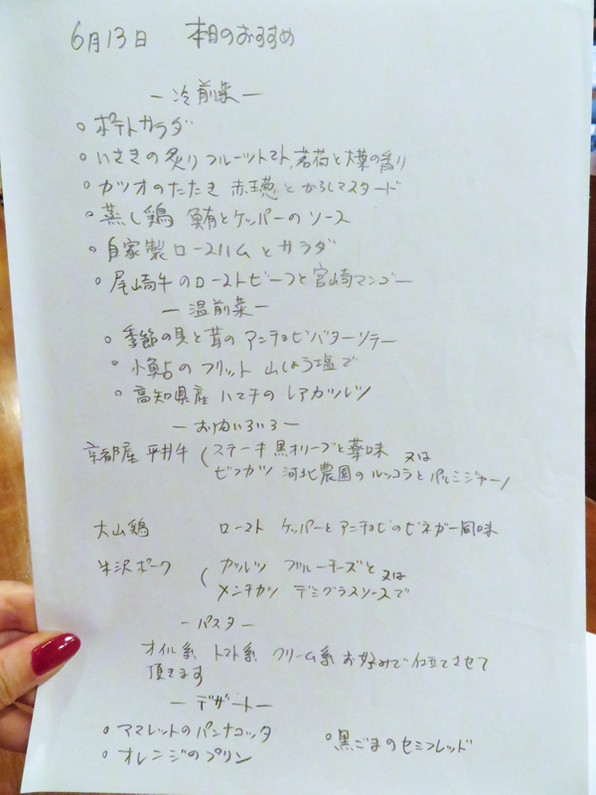 6月13日 本日のおすすめ
ー冷前菜ー
○ ポテトサラダ
○ いさきの炙り フルーツトマト、茗荷と大葉の香り
○ カツオのたたき 赤玉葱とからしマスタード
○ 蒸し鶏 鮪とケッパーのソース
○ 自家製ロースハムとサラダ
○ 尾崎牛のローストビーフと宮崎マンゴー
ー温前菜ー
○ 季節の貝と茸のアンチョビバターソテー
○ 小鮎のフリット 山しょう塩で
○ 高知県産ハマチのレアカツレツ
ーお肉いろいろー
京都屋 平井牛 (ステーキ 黒オリーブと薬味 又は
ビフカツ 河北農園のルッコラとパルミジャーノ
大山鶏 ロースト ケッパーとアンチョビのビネガー風味
米沢ポーク (カツレツ ブルーチーズと 又は
メンチカツ デミグラスソースで
ーパスター
オイル系 トマト系 クリーム系 お好みで仕立てさせて
頂きます
ーデザートー
○ アマレットのパンナコッタ ○ 黒ごまのセミフレッド
○ オレンジのプリン